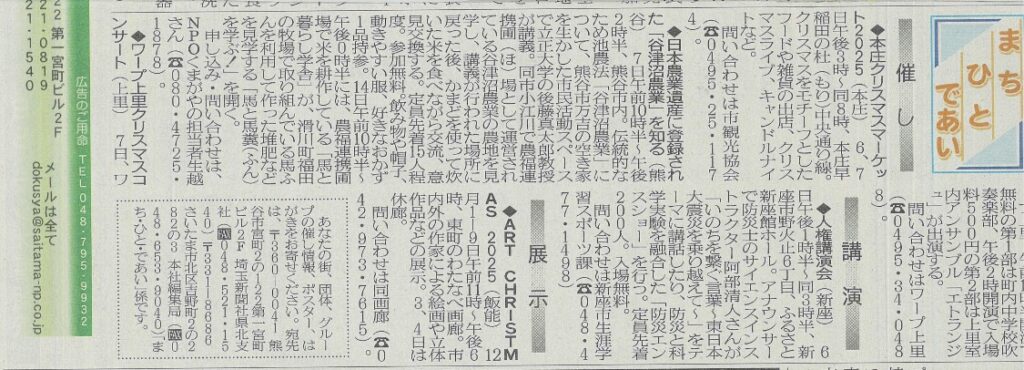 まち
ひと
であい
催し
◆本庄クリスマスマーケッ
ト2025（本庄）　6、7
日午後3時〜同8時、本庄早
稲田の杜（もり）中央通り線。
クリスマスをモチーフとした
フードや雑貨の出店、クリス
マスライブ、キャンドルナイ
トなど。
問い合わせは市観光協会
（☎0495・25・117
4）。
◆日本農業遺産に登録され
た「谷津沼農業」を知る（熊
谷）　7日午前10時〜午後
2時半、熊谷市内。伝統的な
ため池農法「谷津沼農業」に
ついて、熊谷市万吉の空き家
を生かした市民活動スペース
で立正大学の後藤真太郎教授
が講義。同市小江川で農福連
携圃（ほ）場として運営され
ている谷津沼農業の農地を見
学し、講義が行われた場所に
戻った後、かまどを使って炊
いた米を食べながら交流、意
見交換する。定員先着15人程
度。参加無料。飲み物や帽子、
動きやすい服、好きなおかず
1品持参。14日午前10時から
午後0時半には、農福連携圃
場で米を耕作している「馬と
暮らし学舎」が、滑川町福田
の牧場で取り組んでいる馬ふ
んを利用して作った堆肥など
を見学する「馬と馬糞（ふん）
を学ぶ！」を開く。
申し込み・問い合わせは、
NPOくまがやの担当者生越
さん（☎080・4725・
1878）
◆ワープ上里クリスマスコ
ンサート（上里）　7日、ワ
無料の第1部は町内中学校吹
奏楽部、午後2時開演で入場
料500円の第2部は上里室
内アンサンブル「エトランジ
ュ」が出演する。
問い合わせはワープ上里
（☎0495・34・048
8）。
講演
◆人権講演会（新座）　6
日午後1時半〜同3時半、新
座市野火止6丁目、ふるさと
新座館ホール。アナウンサー
で防災士のサイエンスインス
トラクター阿部清人さんが
「いのちを繋ぐ言葉〜東日本
大震災を乗り越えて〜」をテ
ーマに講話したり、防災と科
学実験を融合した「防災エン
スショー」を行う。定員先着
200人。入場無料。
問い合わせは新座市生涯学
習スポーツ課（☎048・4
77・1419）。
展示
◆ART CHRISTM
AS 2025（飯能）　12
月1〜9日午前11時〜午後6
時、東町のわたなべ画廊。市
内外の作家による絵画や立体
作品などの展示。3、4日は
休廊。
問い合わせは同画廊（☎0
42・973・7640）
あなたの街、団体、グルー
プの催し情報、ポスター、は
がきをお寄せください。宛先
は、〒360―0041　熊
谷市宮町2の122第一宮町
ビル2F　埼玉新聞社県北支
社（FAX048・521・15
40）　〒331―8686
さいたま市北区吉野町2の2
82の3　本社編集局（FAX0
48・653・9040）「ま
ち・ひと・であい」係です。
広告のご用命　TEL048-795-9932
メールは全て
dokusya@saitama-np.co.jp
22 第一宮町ビル2F
21・0819
21・1540